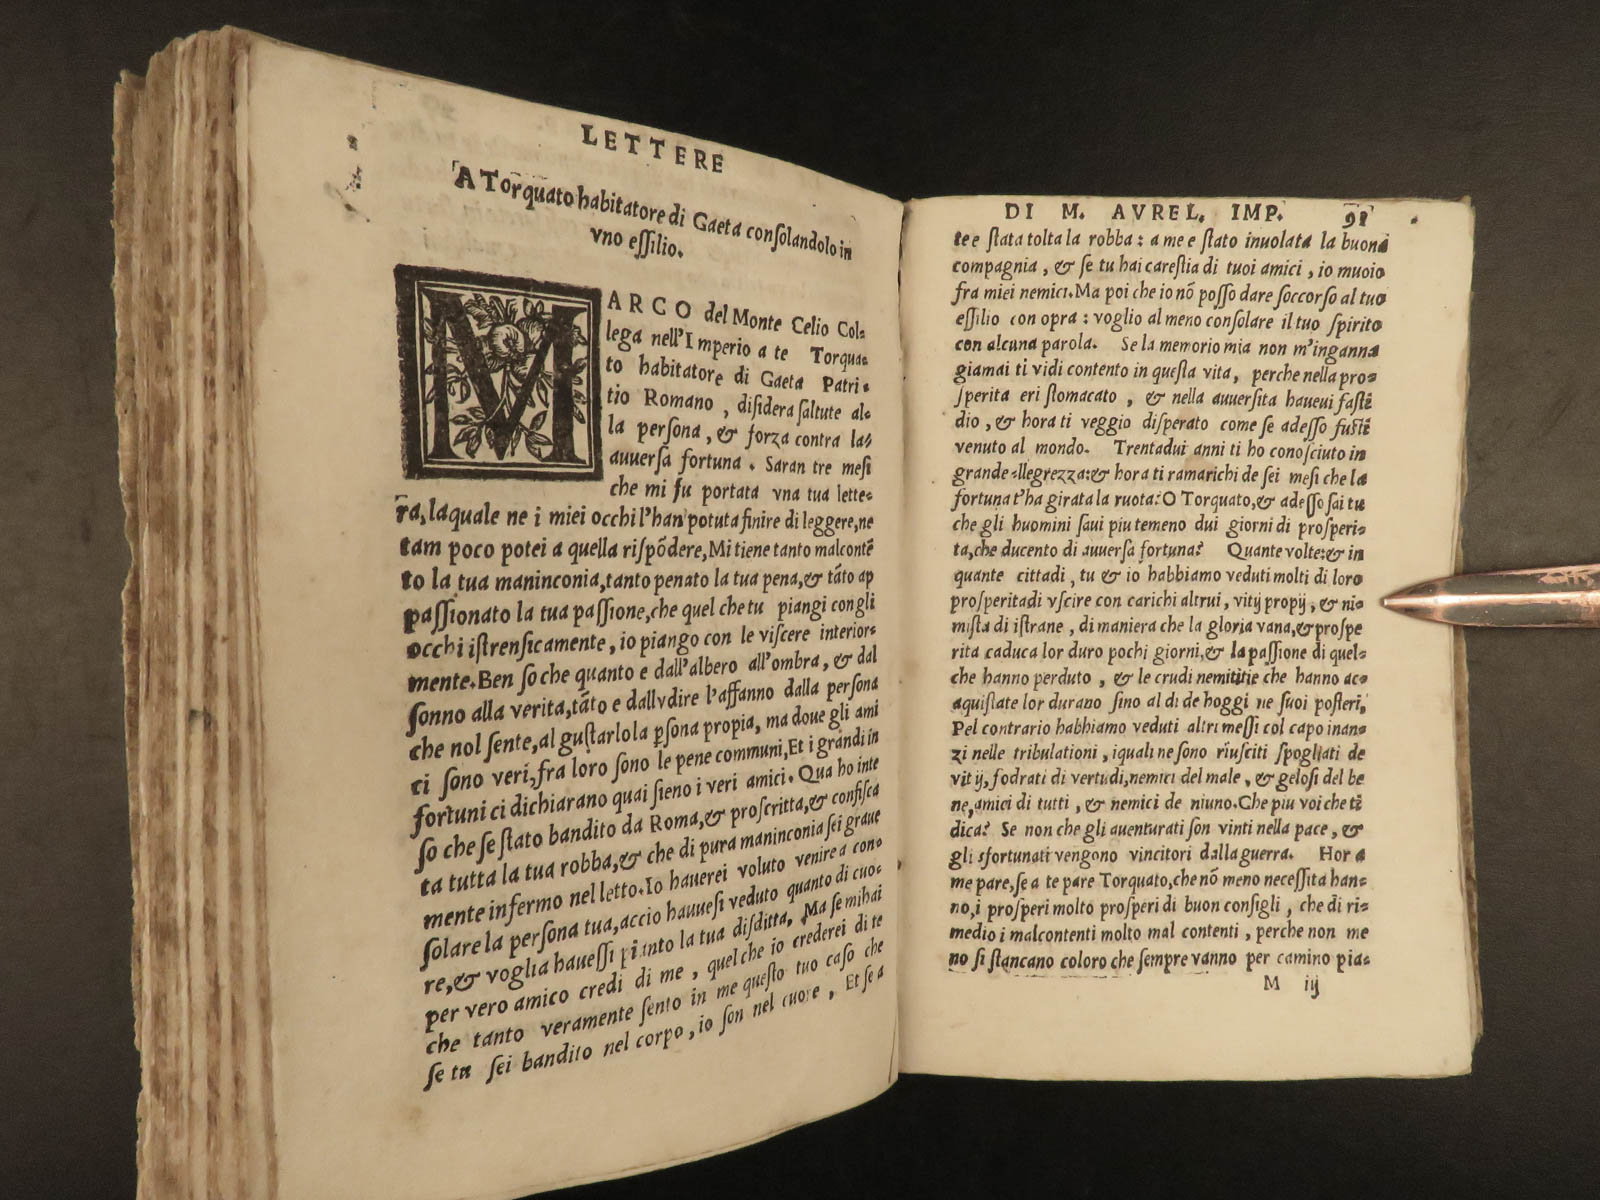 LETTERE
A Torquato habitatore di Gaeta conſolandolo in
vno eſſilio.
MARCO del Monte Celio Col-
lega nell'Imperio a te Torqua-
to habitatore di Gaeta Patri-
tio Romano, diſidera ſaltute al-
la perſona, & forza contra la
auuerſa fortuna. Saran tre meſi
che mi fu portata vna tua lette-
ra, laquale ne i miei occhi l'han potuta finire di leggere, ne
tam poco potei a quella riſpōdere, Mi tiene tanto malcontē
to la tua maninconia, tanto penato la tua pena, & tāto ap
paſſionato la tua paſſione, che quel che tu piangi con gli
occhi iſtrenſicamente, io piango con le viſcere interior-
mente. Ben ſo che quanto e dall'albero all'ombra, & dal
ſonno alla verita, tāto e dallvdire l'affanno dalla perſona
che nol ſente, al guſtarlo la pſona propia, ma doue gli ami
ci ſono veri, fra loro ſono le pene communi, Et i grandi in
fortuni ci dichiarano quai ſieno i veri amici. Qua ho inte
ſo che ſe ſtato bandito da Roma, & proſcritta, & confiſca
ta tutta la tua robba, & che di pura maninconia ſei graue
mente infermo nel letto. Io hauerei voluto venire a con-
ſolare la perſona tua, accio hauueſi veduto quanto di cuo-
re, & voglia haueſſi pianto la tua diſditta, Ma ſe mi hai
per vero amico credi di me, quel che io crederei di te
che tanto veramente ſento in me queſto tuo caſo che
ſe tu ſei bandito nel corpo, io ſon nel cuore, Et ſe a
DI M. AVREL. IMP. 91
te e ſtata tolta la robba: a me e ſtato inuolata la buona
compagnia, & ſe tu hai careſtia di tuoi amici, io muoio
fra miei nemici. Ma poi che io nō poſſo dare ſoccorſo al tuo
eſſilio con opra: voglio al meno conſolare il tuo ſpirito
con alcuna parola. Se la memorio mia non m'inganna
giamai ti vidi contento in queſta vita, perche nella pro-
ſperita eri ſtomacato, & nella auuerſita haueui faſti
dio, & hora ti veggio diſperato come ſe adeſſo fuſti
venuto al mondo. Trentadui anni ti ho conoſciuto in
grande allegrezza: & hora ti ramarichi de ſei meſi che la
fortuna t'ha girata la ruota? O Torquato, & adeſſo ſai tu
che gli huomini ſaui piu temeno dui giorni di proſperi-
ta, che ducento di auuerſa fortuna? Quante volte: & in
quante cittadi, tu & io habbiamo veduti molti di loro
proſperitadi vſcire con carichi altrui, vitij propij, & ni-
miſta di iſtrane, di maniera che la gloria vana, & proſpe
rita caduca lor duro pochi giorni, & la paſſione di quel-
che hanno perduto, & le crudi nemititie che hanno ac-
quiſtate lor durano ſino al di de hoggi ne ſuoi poſteri,
Pel contrario habbiamo veduti altri meſſi col capo inan-
zi nelle tribulationi, iquali ne ſono riuſciti ſpogliati de
vitij, fodrati di vertudi, nemici del male, & geloſi del be
ne, amici di tutti, & nemici de niuno. Che piu voi che ti
dica? Se non che gli auenturati ſon vinti nella pace, &
gli sfortunati vengono vincitori dalla guerra. Hora
me pare, ſe a te pare Torquato, che nō meno neceſſita han-
no, i proſperi molto proſperi di buon conſigli, che di ri-
medio i malcontenti molto mal contenti, perche non me
no ſi ſtancano coloro che ſempre vanno per camino pia-
M iij